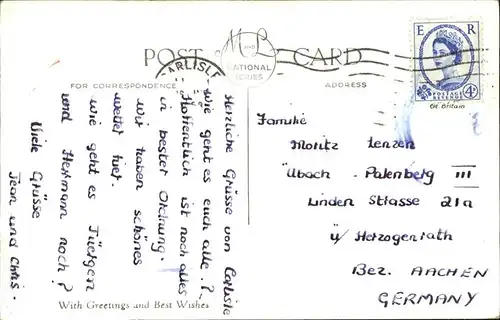 POST CARD
M and L
NATIONAL SERIES
CARLISLE
E R
POSTAGE REVENUE
4D
Gt. Britain
FOR CORRESPONDENCE
ADDRESS
Herzliche Grüsse von Carlisle
Wie geht es euch alle.?
Hoffentlich ist noch alles
in bester Ordnung.
Wir haben schönes
wetter hier.
wie geht es Jüergen
und Hermann noch?
Viele Grüsse
Jean und Chris.
Familie
Moritz Lenzen
Übach - Palenberg III
Linden Strasse 21a
ü/ Herzogenrath
Bez. AACHEN
GERMANY
With Greetings and Best Wishes